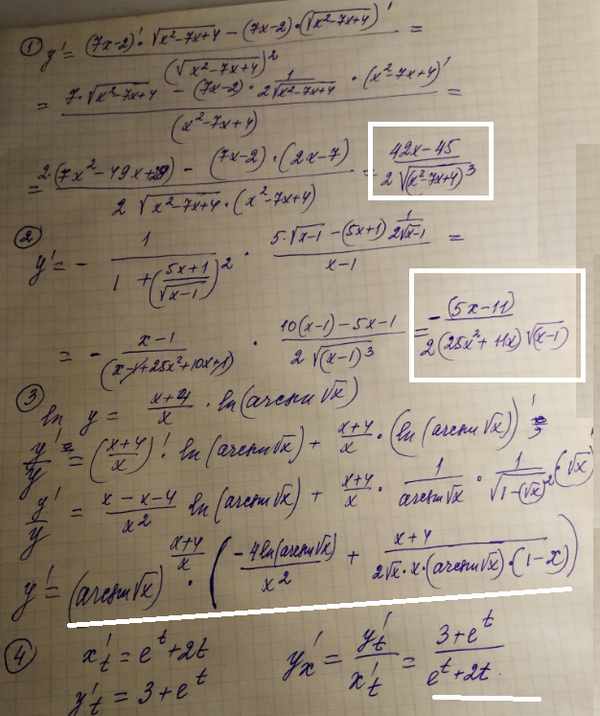 ① y' = ((7x-2)' · √(x²-7x+4) - (7x-2) · (√(x²-7x+4))') / (√(x²-7x+4))² =
= (7 · √(x²-7x+4) - (7x-2) · 1/(2√(x²-7x+4)) · (x²-7x+4)') / (x²-7x+4) =
= (2·(7x²-49x+28) - (7x-2)·(2x-7)) / (2√(x²-7x+4) · (x²-7x+4)) = (42x-45) / (2√(x²-7x+4)³)
② y' = - 1/(1+((5x+1)/√(x-1))²) · (5·√(x-1) - (5x+1) 1/(2√(x-1))) / (x-1) =
= - (x-1)/(x-1+25x²+10x+1) · (10(x-1)-5x-1)/(2√(x-1)³) = -(5x-11)/(2(25x²+11x)√(x-1))
③ ln y = (x+4)/x · ln(arcsin√x)
y'/y = ((x+4)/x)' · ln(arcsin√x) + (x+4)/x · (ln(arcsin√x))'
y'/y = (x-x-4)/x² ln(arcsin√x) + (x+4)/x · 1/(arcsin√x) · 1/√(1-(√x)²) · (√x)'
y' = (arcsin√x)^((x+4)/x) · (-4ln(arcsin√x)/x² + (x+4)/(2√x·x·(arcsin√x)·(1-x)))
④ x't = e^t+2t y'x = y't/x't = (3+e^t)/(e^t+2t)
y't = 3+e^t